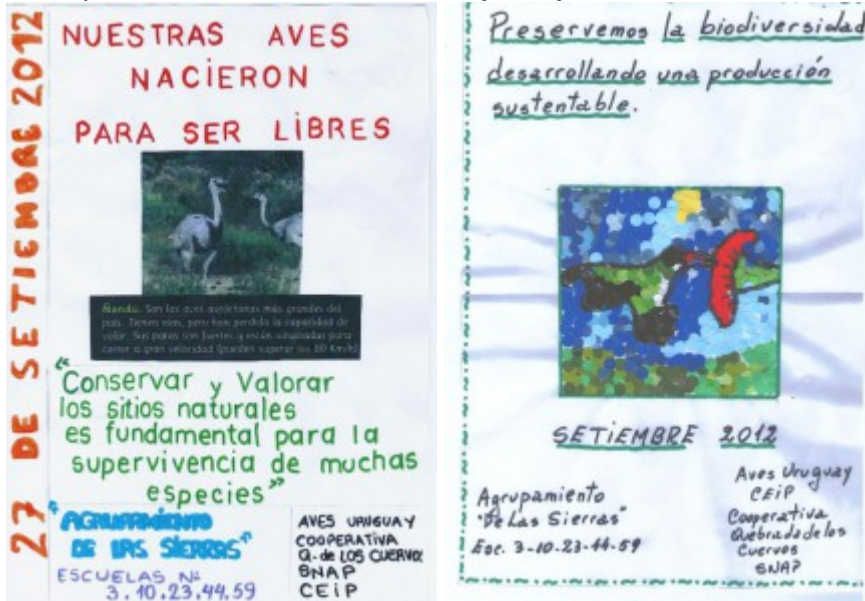 27 DE SETIEMBRE 2012
NUESTRAS AVES
NACIERON
PARA SER LIBRES
Ñandú. Son las aves autóctonas más grandes del
país. Tienen alas, pero han perdido la capacidad de
volar. Sus patas son fuertes y están adaptadas para
correr a gran velocidad (pueden superar los 80 Km/h)
"Conservar y Valorar
los sitios naturales
es fundamental para la
supervivencia de muchas
especies"
"AGRUPAMIENTO
DE LAS SIERRAS"
ESCUELAS Nº
3.10.23.44.59
AVES URUGUAY
COOPERATIVA
Q. de LOS CUERVOS
SNAP
CEIP
Preservemos la biodiversidad
desarrollando una producción
sustentable.
SETIEMBRE 2012
Agrupamiento
"De Las Sierras"
Esc. 3-10-23-44-59
Aves Uruguay
CEIP
Cooperativa
Quebrada de los
Cuervos
SNAP